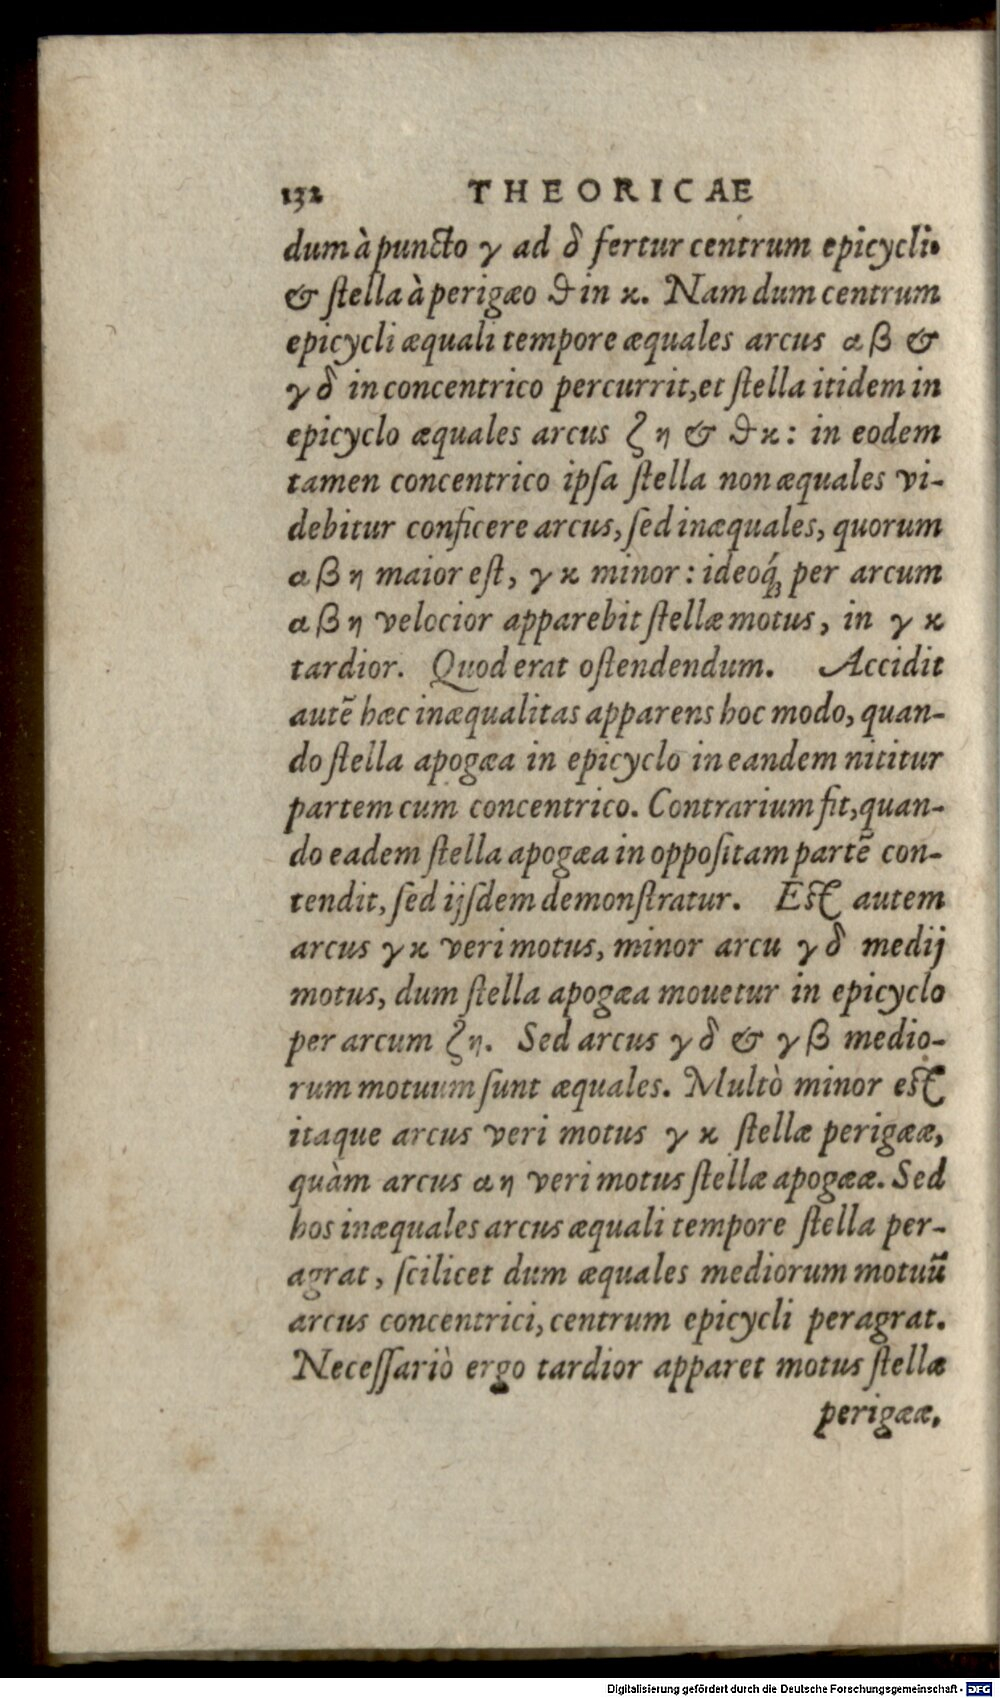 132 THEORICAE
dum à puncto γ ad δ fertur centrum epicycli.
& ſtella à perigæo ϑ in ϰ. Nam dum centrum
epicycli æquali tempore æquales arcus α β &
γ δ in concentrico percurrit, et ſtella itidem in
epicyclo æquales arcus ζ η & ϑ ϰ: in eodem
tamen concentrico ipſa ſtella non æquales vi-
debitur conficere arcus, ſed inæquales, quorum
α β η maior eſt, γ ϰ minor: ideoq́ꝫ per arcum
α β η velocior apparebit ſtellæ motus, in γ ϰ
tardior. Quod erat oſtendendum. Accidit
autẽ hæc inæqualitas apparens hoc modo, quan-
do ſtella apogæa in epicyclo in eandem nititur
partem cum concentrico. Contrarium fit, quan-
do eadem ſtella apogæa in oppoſitam partẽ con-
tendit, ſed ijſdem demonſtratur. Eſt autem
arcus γ ϰ veri motus, minor arcu γ δ medij
motus, dum ſtella apogæa mouetur in epicyclo
per arcum ζ η. Sed arcus γ δ & γ β medio-
rum motuum ſunt æquales. Multò minor eſt
itaque arcus veri motus γ ϰ ſtellæ perigææ,
quàm arcus α η veri motus ſtellæ apogææ. Sed
hos inæquales arcus æquali tempore ſtella per-
agrat, ſcilicet dum æquales mediorum motuũ
arcus concentrici, centrum epicycli peragrat.
Neceſſariò ergo tardior apparet motus ſtellæ
perigææ,
Digitalisierung gefördert durch die Deutsche Forschungsgemeinschaft - DFG